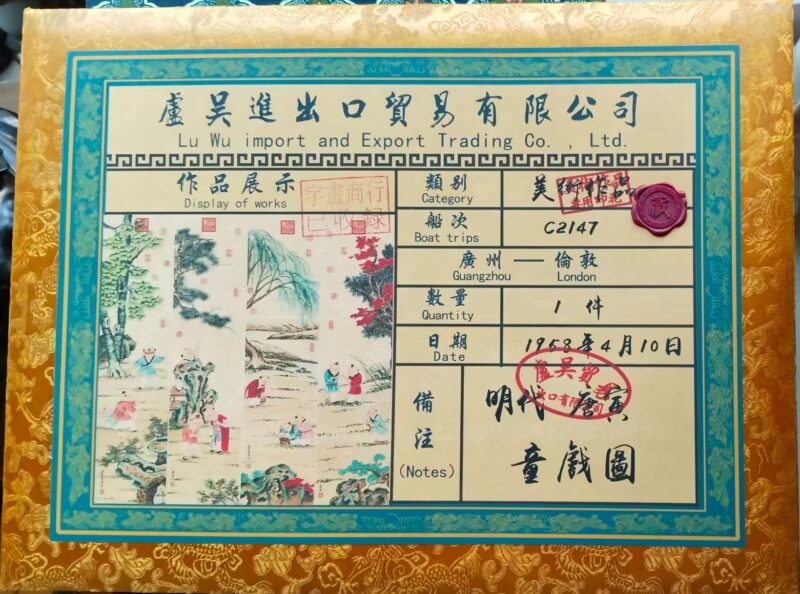 盧吴進出口貿易有限公司
Lu Wu import and Export Trading Co. , Ltd.
作品展示
Display of works
字畫商行
已收錄
類别
Category
美術作品
船次
Boat trips
C2147
廣州 — 倫敦
Guangzhou London
數量
Quantity
1 件
日期
Date
1958年4月10日
備注
(Notes)
明代 唐寅
童戲圖